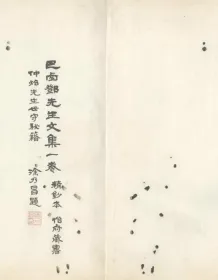 巴西鄧先生文集一卷
精鈔本 怡府藏書
仲炤先生世守秘籍
徐乃昌題